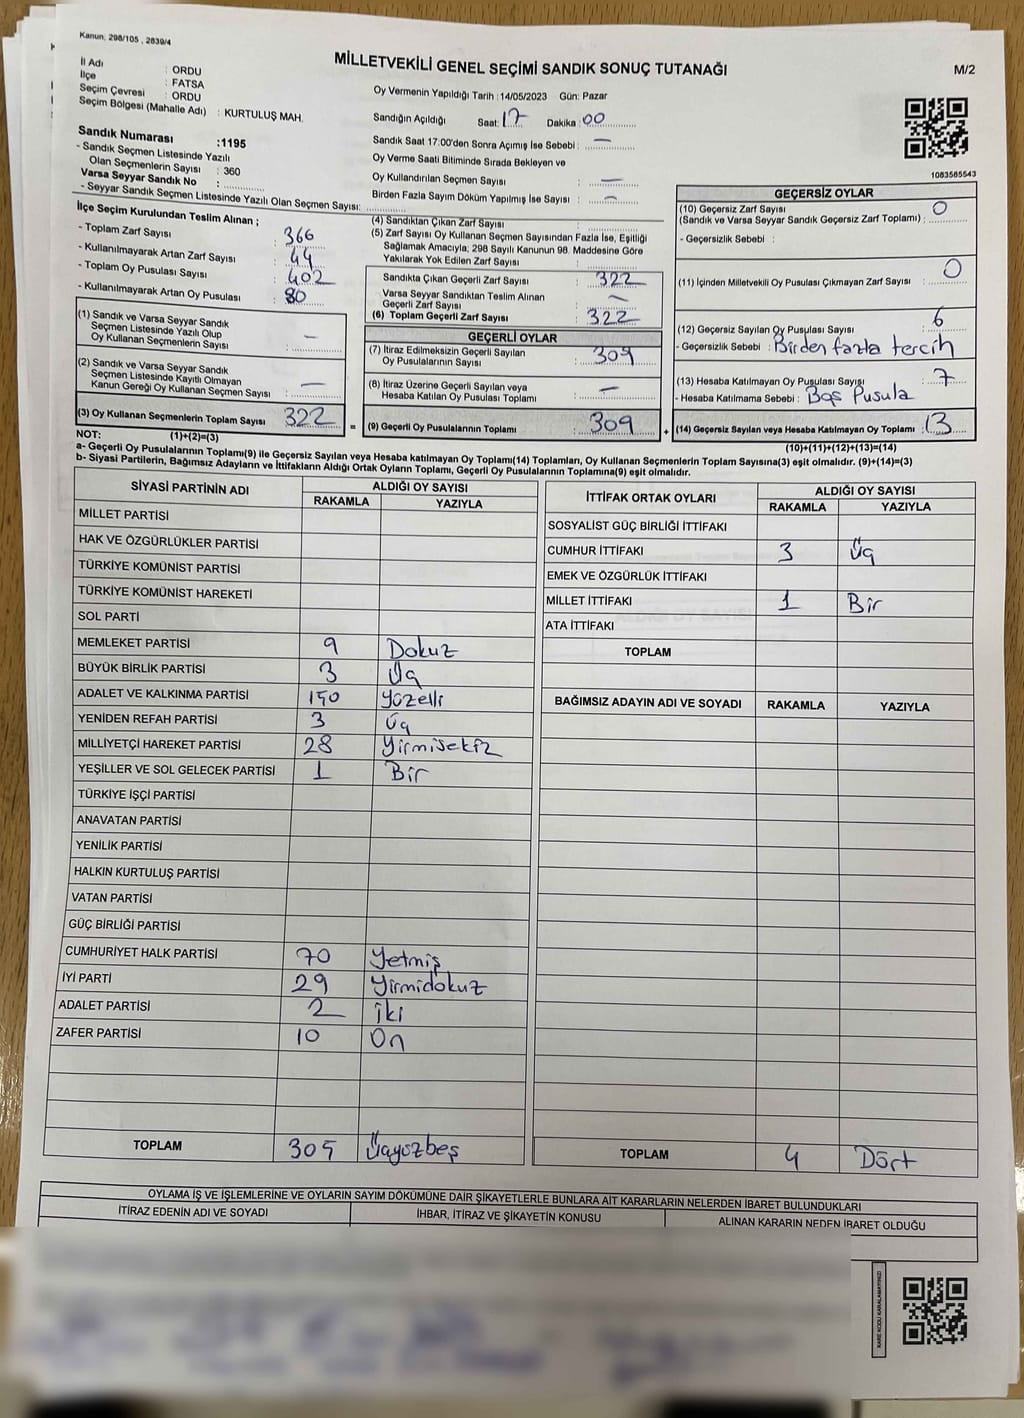 Kanun, 298/105 , 2839/4
MİLLETVEKİLİ GENEL SEÇİMİ SANDIK SONUÇ TUTANAĞI
M/2
İl Adı : ORDU
İlçe : FATSA
Seçim Çevresi : ORDU
Seçim Bölgesi (Mahalle Adı) : KURTULUŞ MAH.
Sandık Numarası :1195
- Sandık Seçmen Listesinde Yazılı
Olan Seçmenlerin Sayısı : 360
Varsa Seyyar Sandık No :
- Seyyar Sandık Seçmen Listesinde Yazılı Olan Seçmen Sayısı:
Oy Vermenin Yapıldığı Tarih :14/05/2023 Gün: Pazar
Sandığın Açıldığı Saat: 17 Dakika : 00
Sandık Saat 17:00'den Sonra Açımış İse Sebebi : —
Oy Verme Saati Bitiminde Sırada Bekleyen ve
Oy Kullandırılan Seçmen Sayısı : —
Birden Fazla Sayım Döküm Yapılmış İse Sayısı : —
1083585543
İlçe Seçim Kurulundan Teslim Alınan ;
- Toplam Zarf Sayısı : 366
- Kullanılmayarak Artan Zarf Sayısı : 44
- Toplam Oy Pusulası Sayısı : 402
- Kullanılmayarak Artan Oy Pusulası : 80
(1) Sandık ve Varsa Seyyar Sandık
Seçmen Listesinde Yazılı Olup
Oy Kullanan Seçmenlerin Sayısı : —
(2) Sandık ve Varsa Seyyar Sandık
Seçmen Listesinde Kayıtlı Olmayan
Kanun Gereği Oy Kullanan Seçmen Sayısı : —
(3) Oy Kullanan Seçmenlerin Toplam Sayısı : 322
(4) Sandıktan Çıkan Zarf Sayısı :
(5) Zarf Sayısı Oy Kullanan Seçmen Sayısından Fazla İse, Eşitliği
Sağlamak Amacıyla; 298 Sayılı Kanunun 98. Maddesine Göre
Yakılarak Yok Edilen Zarf Sayısı :
Sandıkta Çıkan Geçerli Zarf Sayısı : 322
Varsa Seyyar Sandıktan Teslim Alınan
Geçerli Zarf Sayısı : —
(6) Toplam Geçerli Zarf Sayısı : 322
GEÇERLİ OYLAR
(7) İtiraz Edilmeksizin Geçerli Sayılan
Oy Pusulalarının Sayısı : 309
(8) İtiraz Üzerine Geçerli Sayılan veya
Hesaba Katılan Oy Pusulası Toplamı : —
= (9) Geçerli Oy Pusulalarının Toplamı : 309
GEÇERSİZ OYLAR
(10) Geçersiz Zarf Sayısı 0
(Sandık ve Varsa Seyyar Sandık Geçersiz Zarf Toplamı) :
- Geçersizlik Sebebi :
(11) İçinden Milletvekili Oy Pusulası Çıkmayan Zarf Sayısı : 0
(12) Geçersiz Sayılan Oy Pusulası Sayısı : 6
- Geçersizlik Sebebi : Birden fazla tercih
(13) Hesaba Katılmayan Oy Pusulası Sayısı : 7
- Hesaba Katılmama Sebebi : Boş Pusula
+ (14) Geçersiz Sayılan veya Hesaba Katılmayan Oy Toplamı : 13
NOT: (1)+(2)=(3)
(10)+(11)+(12)+(13)=(14)
a- Geçerli Oy Pusulalarının Toplam(9) ile Geçersiz Sayılan veya Hesaba katılmayan Oy Toplam(14) Toplamları, Oy Kullanan Seçmenlerin Toplam Sayısına(3) eşit olmalıdır. (9)+(14)=(3)
b- Siyasi Partilerin, Bağımsız Adayların ve İttifakların Aldığı Ortak Oyların Toplamı, Geçerli Oy Pusulalarının Toplamına(9) eşit olmalıdır.
SİYASİ PARTİNİN ADI ALDIĞI OY SAYISI
RAKAMLA YAZIYLA
MİLLET PARTİSİ
HAK VE ÖZGÜRLÜKLER PARTİSİ
TÜRKİYE KOMÜNİST PARTİSİ
TÜRKİYE KOMÜNİST HAREKETİ
SOL PARTİ
MEMLEKET PARTİSİ 9 Dokuz
BÜYÜK BİRLİK PARTİSİ 3 Üç
ADALET VE KALKINMA PARTİSİ 150 Yüzelli
YENİDEN REFAH PARTİSİ 3 Üç
MİLLİYETÇİ HAREKET PARTİSİ 28 Yirmisekiz
YEŞİLLER VE SOL GELECEK PARTİSİ 1 Bir
TÜRKİYE İŞÇİ PARTİSİ
ANAVATAN PARTİSİ
YENİLİK PARTİSİ
HALKIN KURTULUŞ PARTİSİ
VATAN PARTİSİ
GÜÇ BİRLİĞİ PARTİSİ
CUMHURİYET HALK PARTİSİ 70 Yetmiş
İYİ PARTİ 29 Yirmidokuz
ADALET PARTİSİ 2 İki
ZAFER PARTİSİ 10 On
TOPLAM 305 Üçyüzbeş
İTTİFAK ORTAK OYLARI ALDIĞI OY SAYISI
RAKAMLA YAZIYLA
SOSYALİST GÜÇ BİRLİĞİ İTTİFAKI
CUMHUR İTTİFAKI 3 Üç
EMEK VE ÖZGÜRLÜK İTTİFAKI
MİLLET İTTİFAKI 1 Bir
ATA İTTİFAKI
TOPLAM
BAĞIMSIZ ADAYIN ADI VE SOYADI RAKAMLA YAZIYLA
TOPLAM 4 Dört
OYLAMA İŞ VE İŞLEMLERİNE VE OYLARIN SAYIM DÖKÜMÜNE DAİR ŞİKAYETLERLE BUNLARA AİT KARARLARIN NELERDEN İBARET BULUNDUKLARI
İTİRAZ EDENİN ADI VE SOYADI İHBAR, İTİRAZ VE ŞİKAYETİN KONUSU ALINAN KARARIN NEDEN İBARET OLDUĞU
KARE KODU KARALAMAYINIZ!